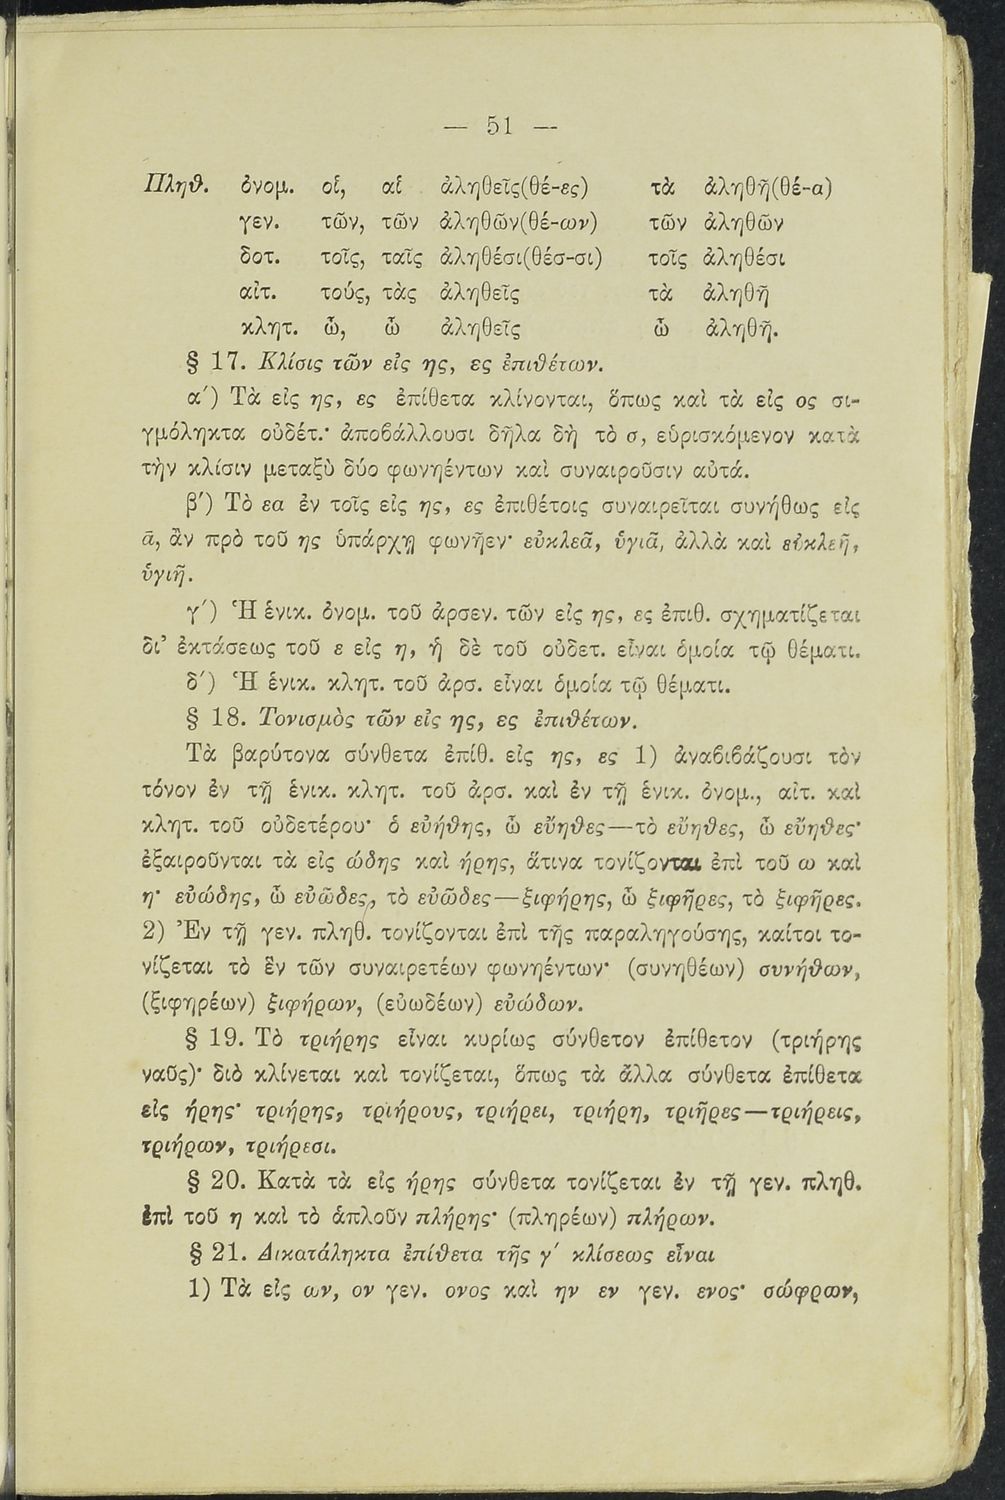 — 51 —
Πληθ. ὀνομ. οἱ, αἱ ἀληθεῖς(θέ-ες) τὰ ἀληθῆ(θέ-α)
γεν. τῶν, τῶν ἀληθῶν(θέ-ων) τῶν ἀληθῶν
δοτ. τοῖς, ταῖς ἀληθέσι(θέσ-σι) τοῖς ἀληθέσι
αἰτ. τούς, τὰς ἀληθεῖς τὰ ἀληθῆ
κλητ. ὦ, ὦ ἀληθεῖς ὦ ἀληθῆ.
§ 17. Κλίσις τῶν εἰς ης, ες ἐπιθέτων.
α΄) Τὰ εἰς ης, ες ἐπίθετα κλίνονται, ὅπως καὶ τὰ εἰς ος σι-
γμόληκτα οὐδέτ.· ἀποβάλλουσι δῆλα δὴ τὸ σ, εὑρισκόμενον κατὰ
τὴν κλίσιν μεταξὺ δύο φωνηέντων καὶ συναιροῦσιν αὐτά.
β΄) Τὸ εα ἐν τοῖς εἰς ης, ες ἐπιθέτοις συναιρεῖται συνήθως εἰς
ᾶ, ἂν πρὸ τοῦ ης ὑπάρχῃ φωνῆεν· εὐκλεᾶ, ὑγιᾶ, ἀλλὰ καὶ εὐκλεῆ,
ὑγιῆ.
γ΄) Ἡ ἑνικ. ὀνομ. τοῦ ἀρσεν. τῶν εἰς ης, ες ἐπιθ. σχηματίζεται
δι᾽ ἐκτάσεως τοῦ ε εἰς η, ἡ δὲ τοῦ οὐδετ. εἶναι ὁμοία τῷ θέματι.
δ΄) Ἡ ἑνικ. κλητ. τοῦ ἀρσ. εἶναι ὁμοία τῷ θέματι.
§ 18. Τονισμὸς τῶν εἰς ης, ες ἐπιθέτων.
Τὰ βαρύτονα σύνθετα ἐπίθ. εἰς ης, ες 1) ἀναβιβάζουσι τὸν
τόνον ἐν τῇ ἑνικ. κλητ. τοῦ ἀρσ. καὶ ἐν τῇ ἑνικ. ὀνομ., αἰτ. καὶ
κλητ. τοῦ οὐδετέρου· ὁ εὐήθης, ὦ εὔηθες—τὸ εὔηθες, ὦ εὔηθες·
ἐξαιροῦνται τὰ εἰς ώδης καὶ ήρης, ἅτινα τονίζονται ἐπὶ τοῦ ω καὶ
η· εὐώδης, ὦ εὐῶδες, τὸ εὐῶδες—ξιφήρης, ὦ ξιφῆρες, τὸ ξιφῆρες.
2) Ἐν τῇ γεν. πληθ. τονίζονται ἐπὶ τῆς παραληγούσης, καίτοι το-
νίζεται τὸ ἓν τῶν συναιρετέων φωνηέντων· (συνηθέων) συνήθων,
(ξιφηρέων) ξιφήρων, (εὐωδέων) εὐώδων.
§ 19. Τὸ τριήρης εἶναι κυρίως σύνθετον ἐπίθετον (τριήρης
ναῦς)· διὸ κλίνεται καὶ τονίζεται, ὅπως τὰ ἄλλα σύνθετα ἐπίθετα
εἰς ήρης· τριήρης, τριήρους, τριήρει, τριήρη, τριῆρες—τριήρεις,
τριήρων, τριήρεσι.
§ 20. Κατὰ τὰ εἰς ήρης σύνθετα τονίζεται ἐν τῇ γεν. πληθ.
ἐπὶ τοῦ η καὶ τὸ ἁπλοῦν πλήρης· (πληρέων) πλήρων.
§ 21. Δικατάληκτα ἐπίθετα τῆς γ΄ κλίσεως εἶναι
1) Τὰ εἰς ων, ον γεν. ονος καὶ ην εν γεν. ενος· σώφρων,